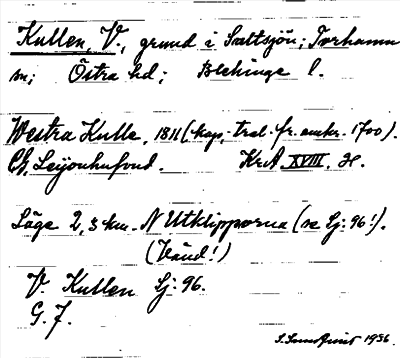 Kullen, V., grund i Saltsjön; Torhamn
sn; Östra hd; Blekinge l.
Westra Kulle, 1811 (kop. trol. fr. omkr. 1700).
Chf. Leijonhufvud. KrA XVIII, H.
Läge 2,3 km. N Utklipporna (se Sj: 96!).
(Vänd!)
V. Kullen Sj: 96.
G. F.
S. Sundquist 1936